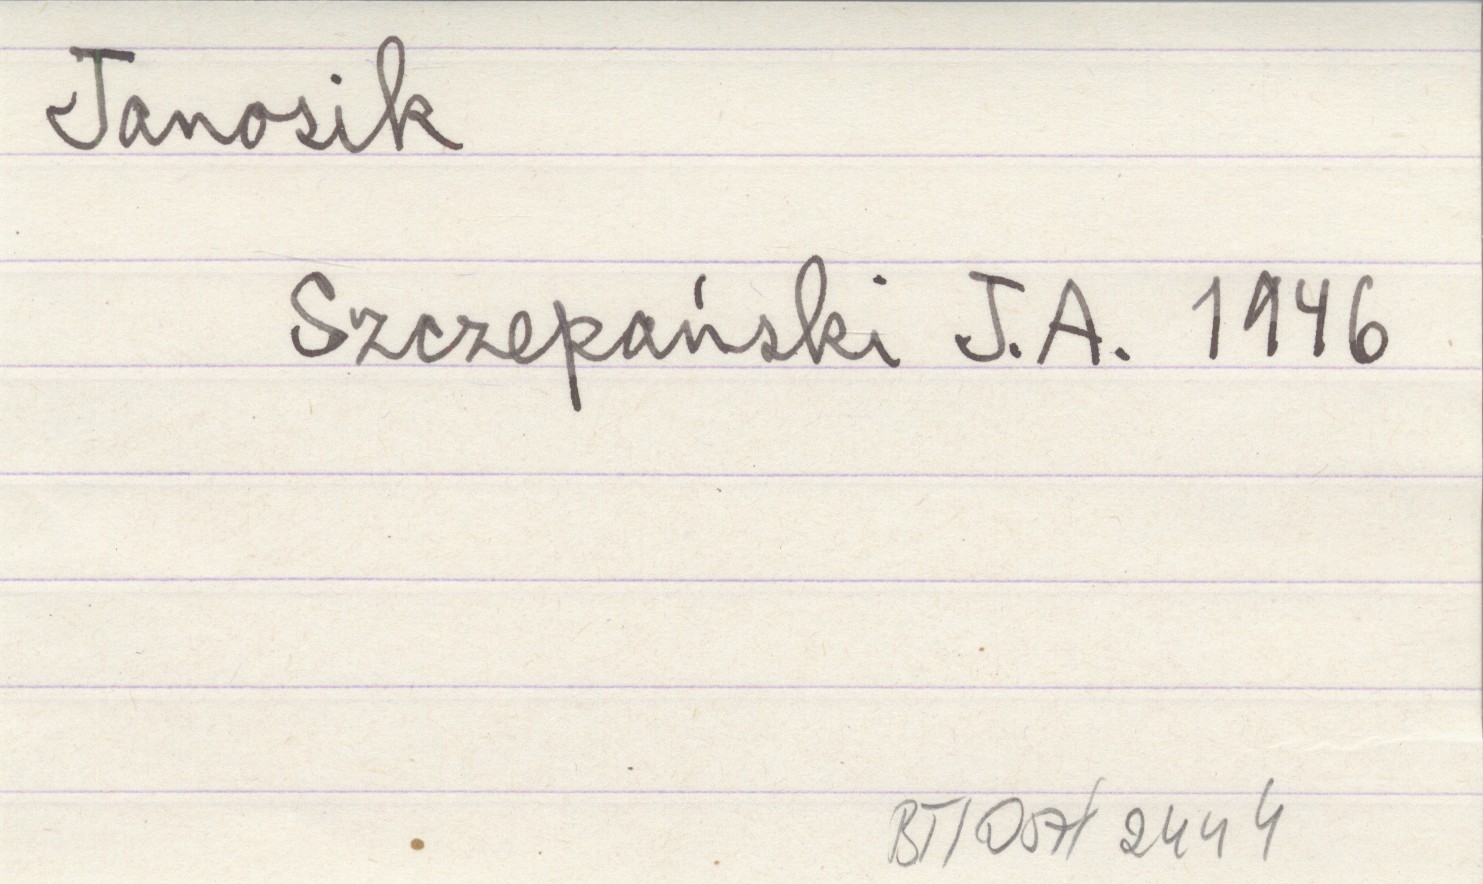 Janosik
Szczepański J.A. 1946
BT/057/2444